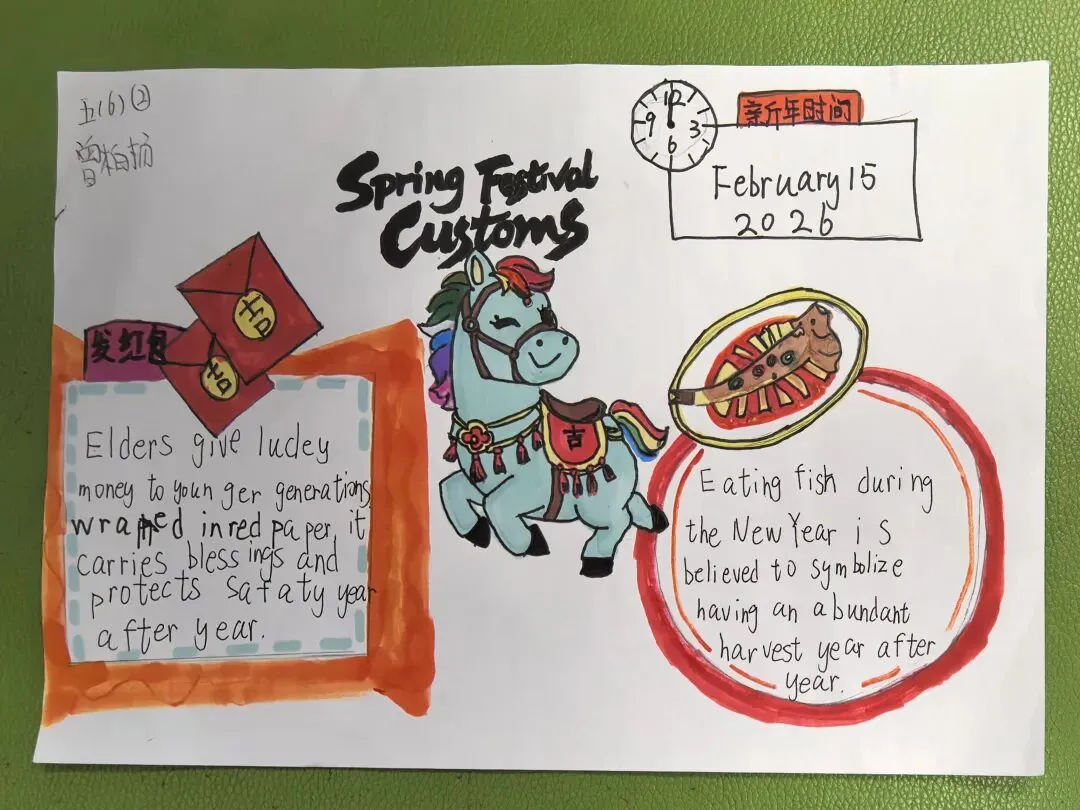 五(6)②
曾柏扬
Spring Festival
Customs
12
9 3
6
新年时间
February 15
2026
吉
发红包
吉
Elders give luckey
money to youn ger generations,
wrapped in red paper, it
carries blessings and
protects safaty year
after year.
吉
Eating fish during
the New Year is
believed to symbolize
having an abundant
harvest year after
year.